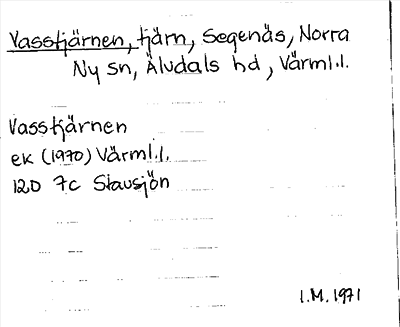 Vasstjärnen, tjärn, Segenäs, Norra
Ny sn, Älvdals hd, Värml.l.
Vasstjärnen
ek (1970) Värml.l.
12D 7c Stausjön
I.M. 1971